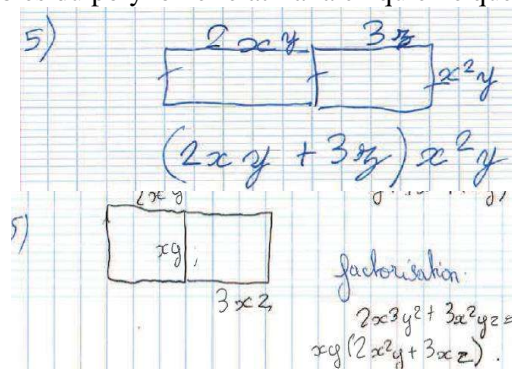 5)
2xy 3z
x²y
(2xy + 3z) x²y
5)
xy
3xz
factorisation
2x3y² + 3x²yz =
xy (2x²y + 3xz).